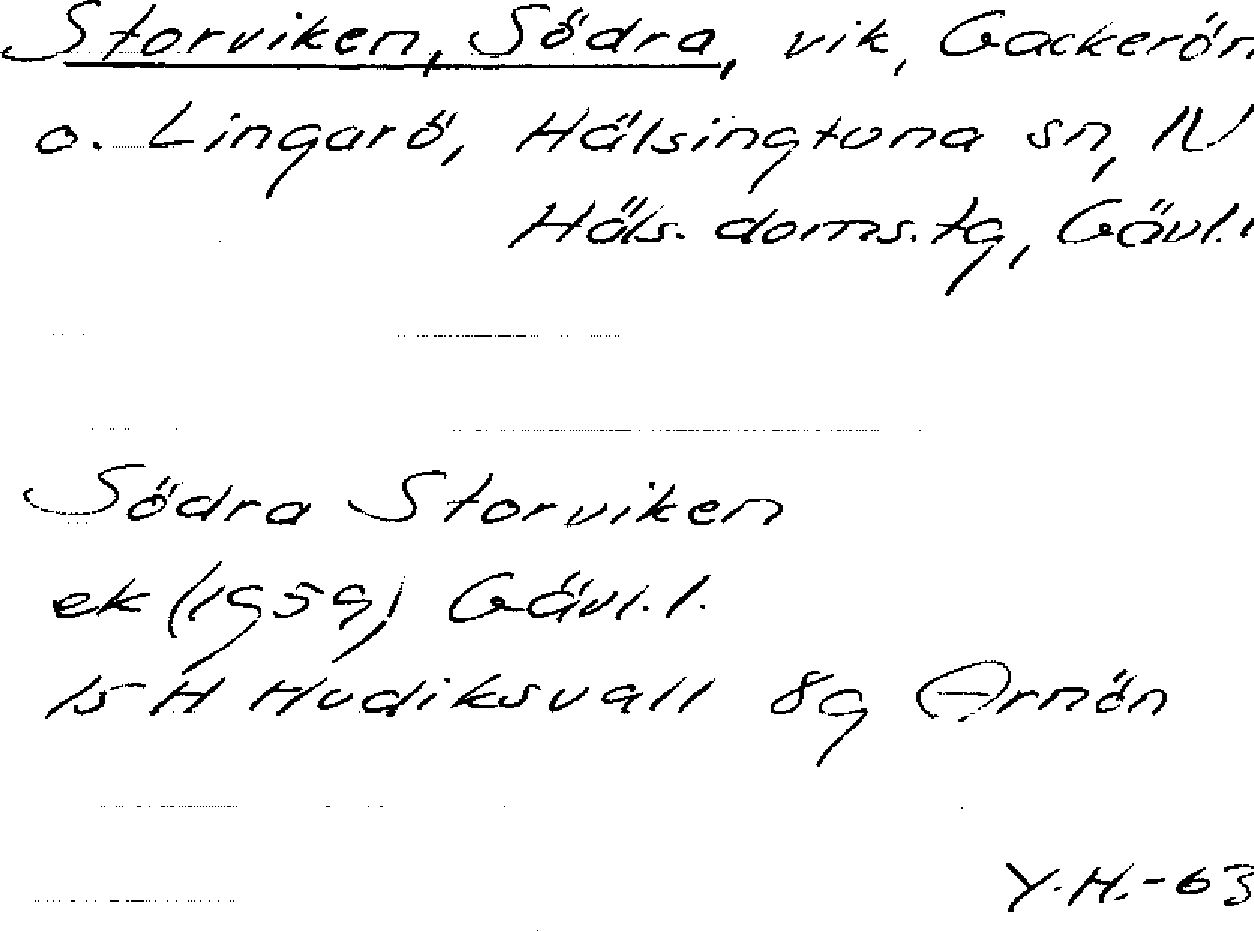 Storviken, Södra, vik, Gackerön
o. Lingarö, Hälsingtuna sn, N
Häls. doms.tg, Gävl.l
Södra Storviken
ek (1959) Gävl.l.
15 H Hudiksvall 8g Arnön
Y.H.-63